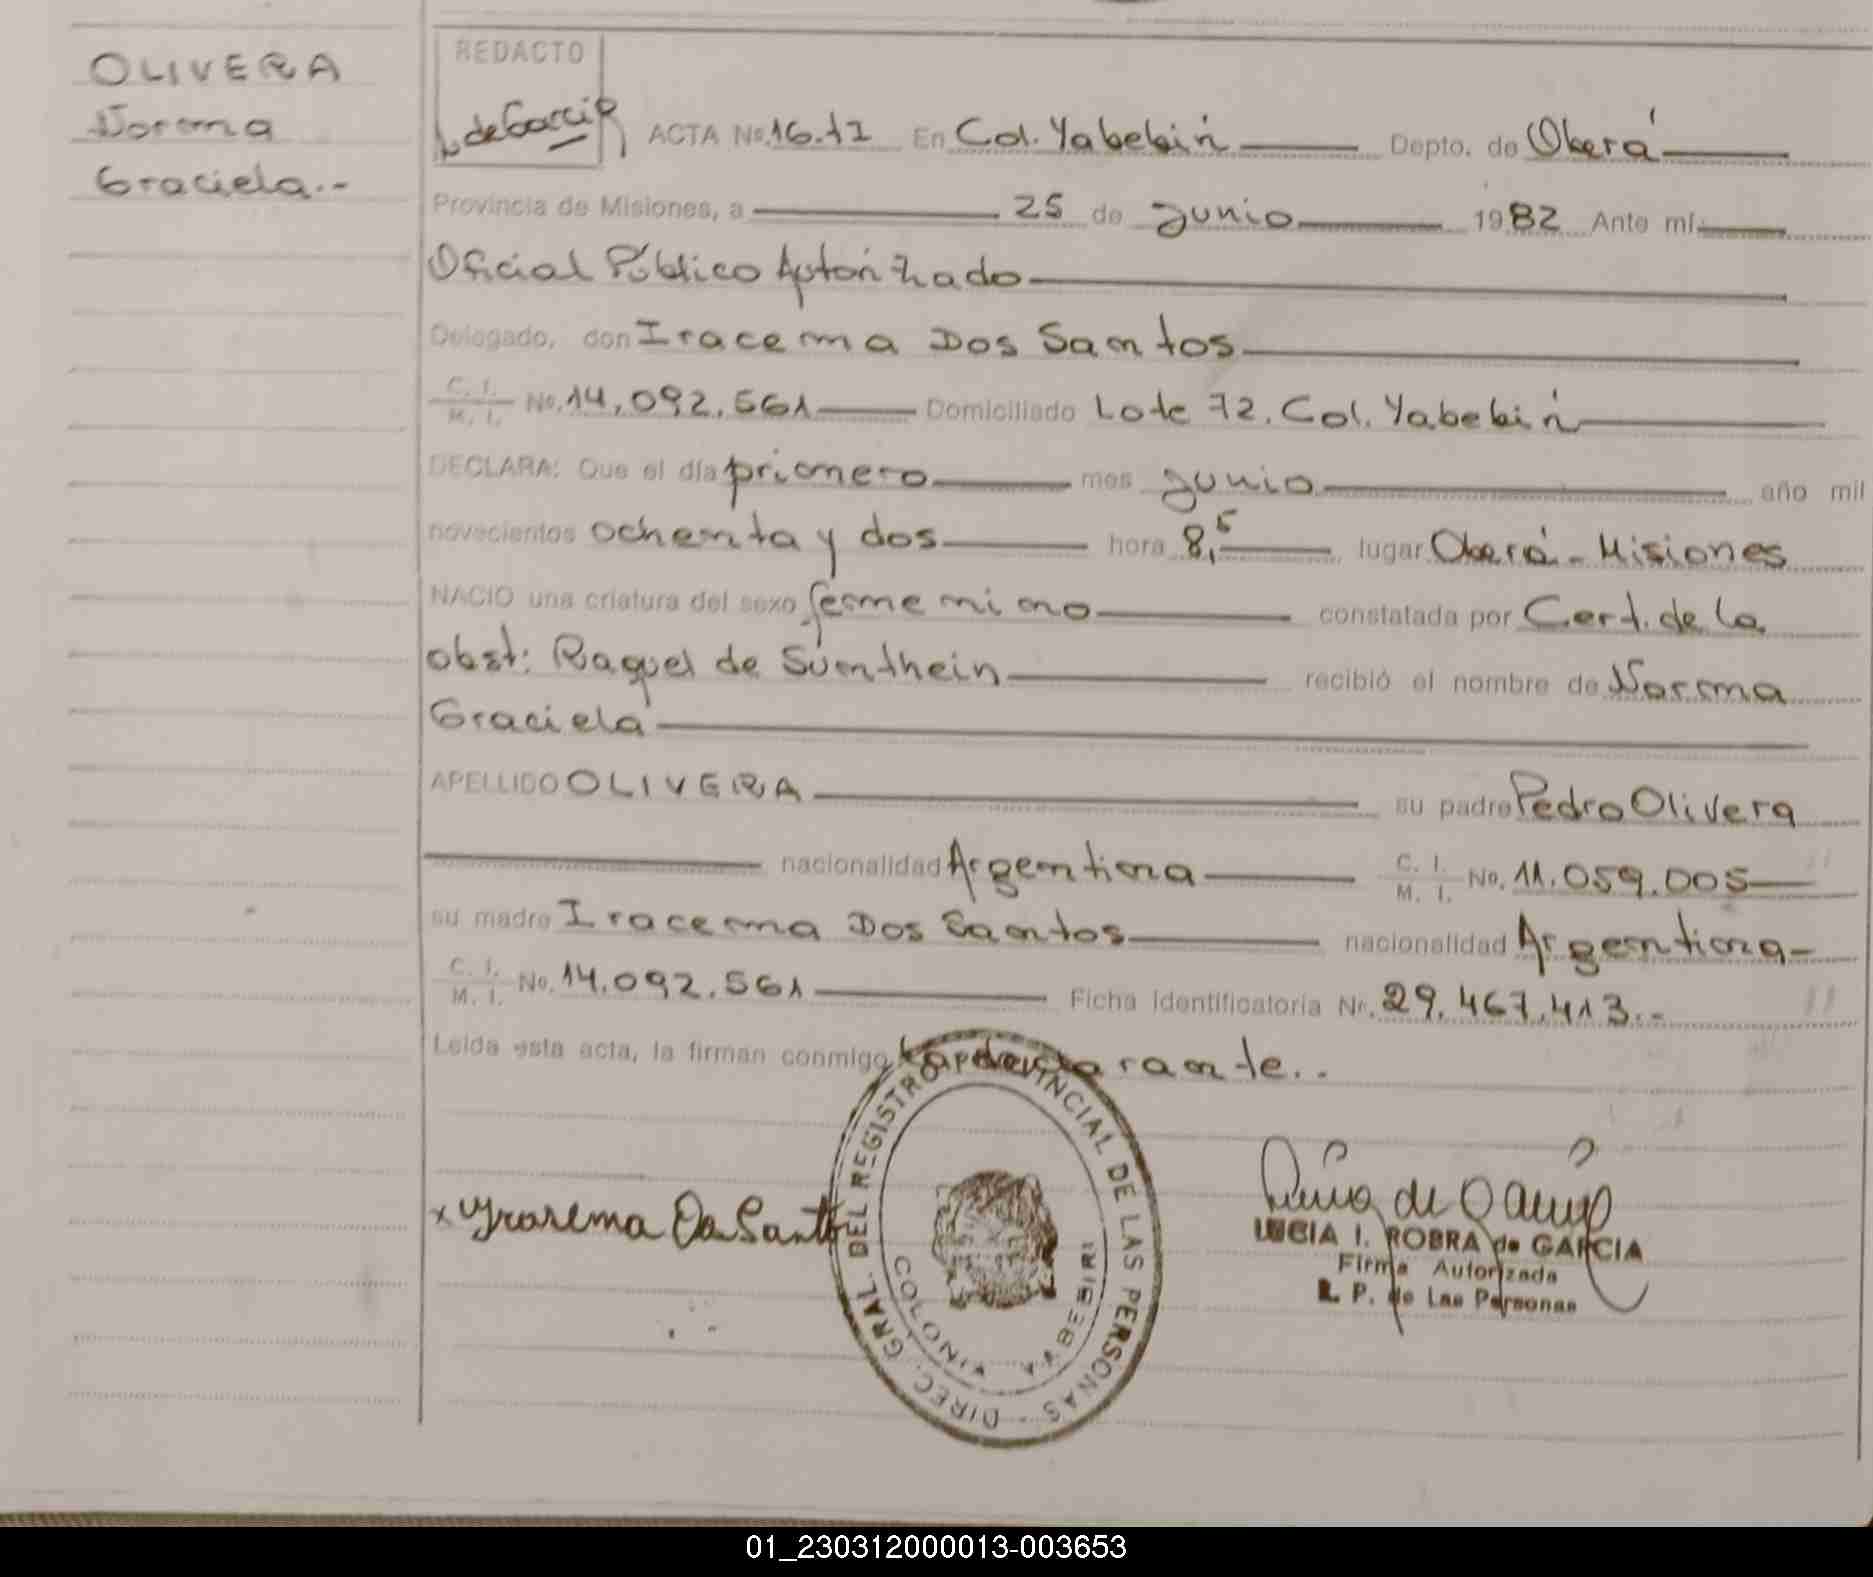 OLIVERA
Norma
Graciela.-
REDACTO
de Garcia
ACTA No. 16.tI En Col. Yabebirí Depto. de Oberá
Provincia de Misiones, a 25 de junio 1982 Ante mí
Oficial Público Autorizado
Delegado, don Iracema Dos Santos
C. I. / M. I. No. 14,092,561 Domiciliado Lote 72. Col. Yabebirí
DECLARA: Que el día primero mes junio año mil
novecientos ochenta y dos hora 8,5 lugar Oberá - Misiones
NACIO una criatura del sexo femenino constatada por Cert. de la
obst: Raquel de Sünthein recibió el nombre de Norma
Graciela
APELLIDO OLIVERA su padre Pedro Olivera
nacionalidad Argentina C. I. / M. I. No. 11.059.005
su madre Iracema Dos Santos nacionalidad Argentina-
C. I. / M. I. No. 14.092.561 Ficha identificatoria Nr. 29.467.413.-
Leída esta acta, la firman conmigo la declarante..
x Yrasema Do Santo
DIREC. GRAL. DEL REGISTRO PROVINCIAL DE LAS PERSONAS -
COLONIA YABEBIRI
LUCIA I. ROBRA de GARCIA
Firma Autorizada
R. P. de Las Personas
01_230312000013-003653